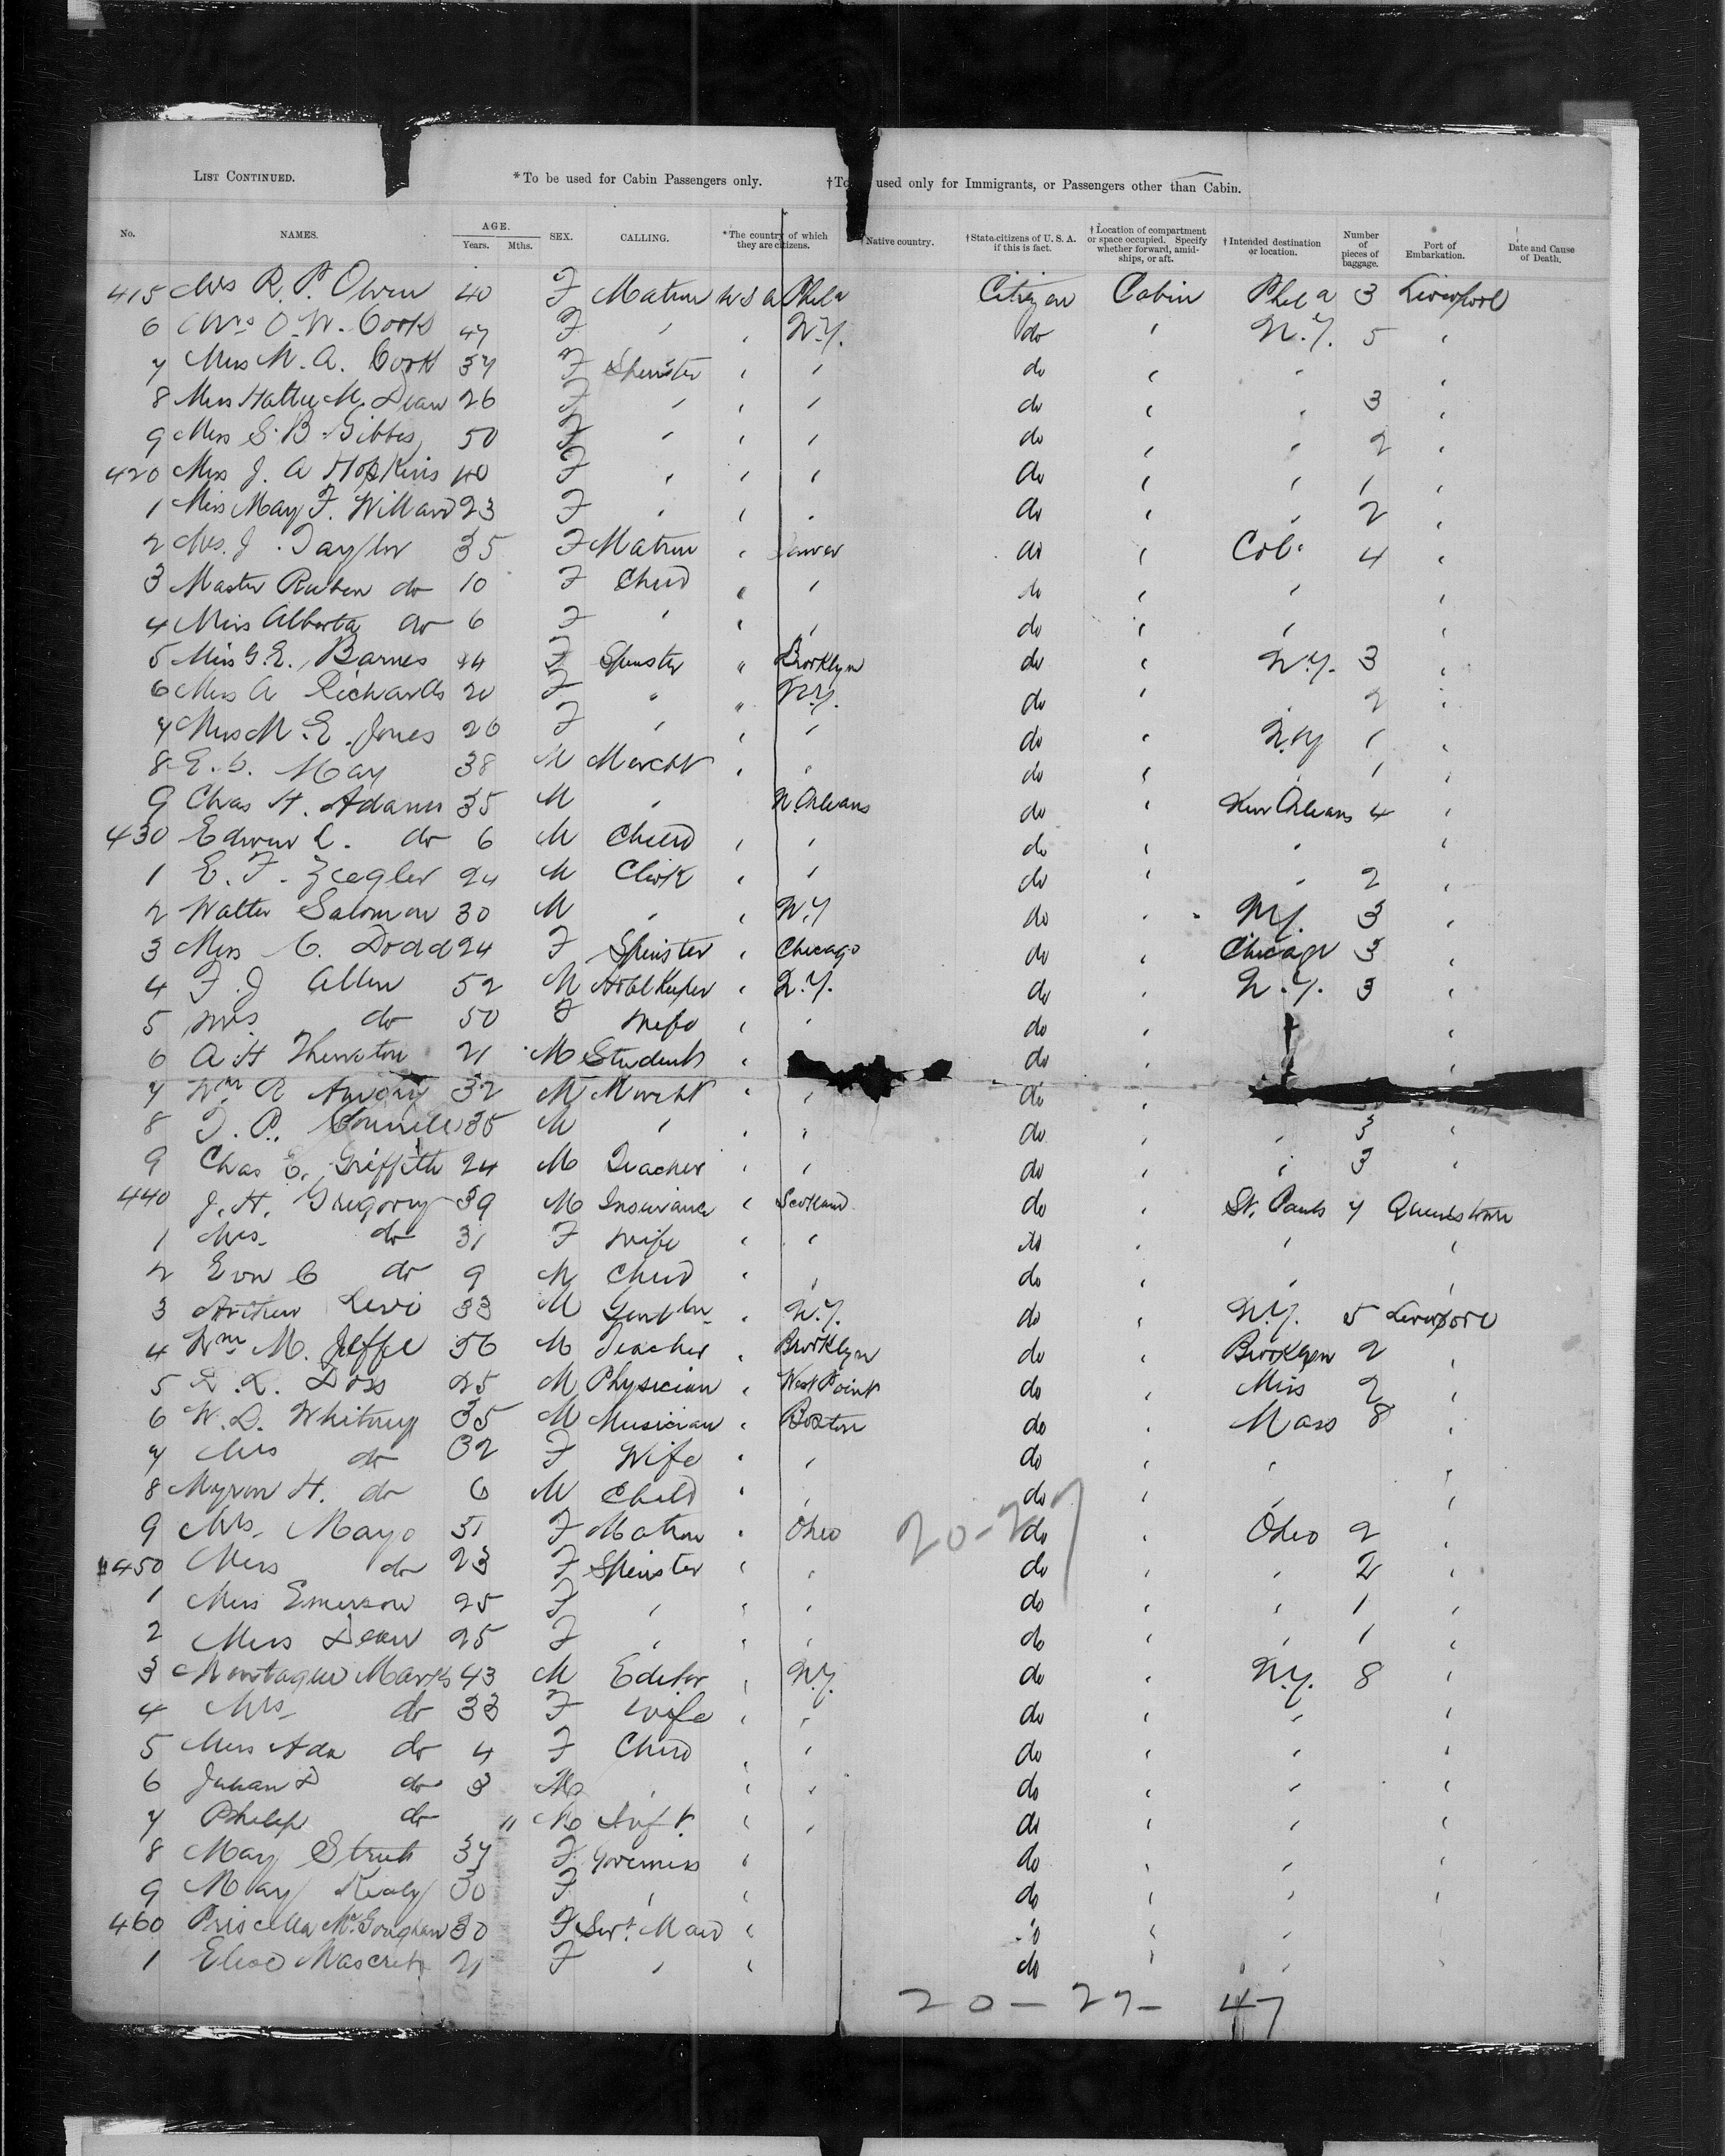 LIST CONTINUED. *To be used for Cabin Passengers only. †To used only for Immigrants, or Passengers other than Cabin.
No. NAMES. AGE. Years. Mths. SEX. CALLING. *The country of which they are citizens. Native country. †State citizens of U. S. A. if this is fact. †Location of compartment or space occupied. Specify whether forward, amidships, or aft. †Intended destination or location. Number of pieces of baggage. Port of Embarkation. Date and Cause of Death.
415 Mrs R. P. Owen 40 F Matron U S A Phila Citizen Cabin Phila 3 Liverpool
6 Mrs O. W. Cook 47 F " " N.Y. do " N.Y. 5 "
7 Miss M. A. Cook 37 F Spinster " " do " " "
8 Miss Hattie M. Dean 26 F " " " do " " 3 "
9 Miss S. B. Gibbes 50 F " " " do " " 2 "
420 Miss J. A Hopkins 40 F " " " do " " 1 "
1 Miss May F. Willard 23 F " " " do " " 2 "
2 Mrs. J. Taylor 35 F Matron " do " Col. 4 "
3 Master Reuben do 10 F Child " " do " " "
4 Miss Alberta do 6 F " " " do " " "
5 Miss G. E. Barnes F Spinster " Brooklyn do " N.Y. 3 "
6 Miss A Richards 20 F " " N.Y. do " 2 "
7 Miss M. E. Jones 26 F " " " do " N.Y 1 "
8 E. C. May 38 M Mercht " " do " " 1 "
9 Chas H. Adams 35 M " N Orleans do " New Orleans 4 "
430 Edwin L. do 6 M Child " " do " " "
1 E. F. Zeegler 24 M Clerk " " do " " 2 "
2 Walter Salomon 30 M " " N.Y do " N.Y. 3 "
3 Miss C. Dodd 24 F Spinster " Chicago do " Chicago 3 "
4 F. J Allen 52 M Hotel Keeper " N.Y. do " N.Y. 3 "
5 Mrs do 50 F Wife " " do " "
6 A H 21 M Student " do " "
7 Wm R 32 M Mercht " " do "
8 35 M " " " do " " 3 "
9 Chas E. Griffith 24 M Teacher " " do " " 3 "
440 J. H. Gregory 39 M Insurance " Scotland do " St. Pauls 7 Queenstown
1 Mrs. do 31 F Wife " " do " " "
2 C do 9 M Child " " do " " "
3 Arthur Levi 33 M Gentln " N.Y. do " N.Y. 5 Liverpool
4 Wm M. Jeffe 56 M Teacher " Brooklyn do " Brooklyn 2 "
5 Doss 25 M Physician " West Point do " Miss 2 "
6 W. D. Whitney 35 M Musician " Boston do " Mass 8 "
7 Mrs do 32 F Wife " " do " " "
8 Myron H. do 6 M Child " " do " " "
9 Mrs. Mayo 51 F Matron " Ohio 20-27 do " Ohio 2 "
450 Miss do 23 F Spinster " " do " " 2 "
1 Miss Emerson 25 F " " " do " " 1 "
2 Miss Dean 25 F " " " do " " 1 "
3 Montague Marks 43 M Editor " N.Y. do " N.Y. 8 "
4 Mrs. do 33 F Wife " " do " " "
5 Miss Ada do 4 F Child " " do " " "
6 do 3 M " " " do " " "
7 Philip do 11 M Inft. " " do " " "
8 May 37 F Governess " do " " "
9 May Kealy 30 F " " do " " "
460 Priscilla 30 F Servt. Maid " do " " "
1 21 F " " do " " "
20 - 27 - 47